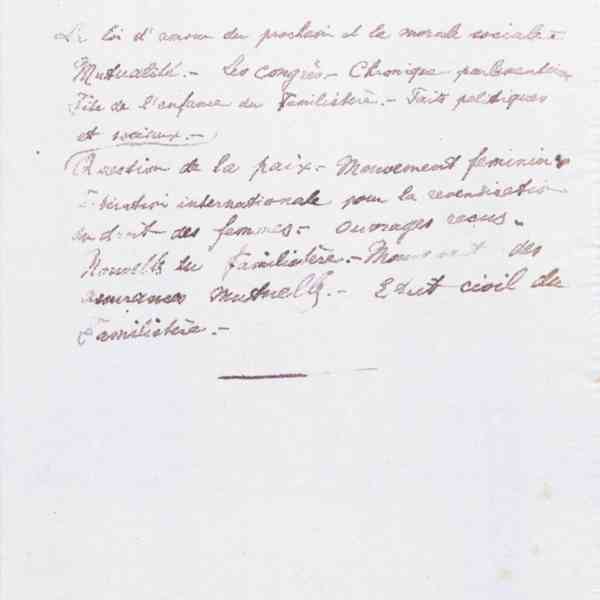 La loi d'amour du prochain et la morale sociale.-
Mutualité.- Les congrès.- Chronique parlementaire
Fête de l'enfance du Familistère.- Faits politiques
et sociaux.-
Question de la paix.- Mouvement féminin.
Fédération internationale pour la revendication
du droit des femmes.- Ouvrages reçus.
Nouvelles du Familistère.- Mouvement des
assurances mutuelles.- Etat civil du
Familistère.-